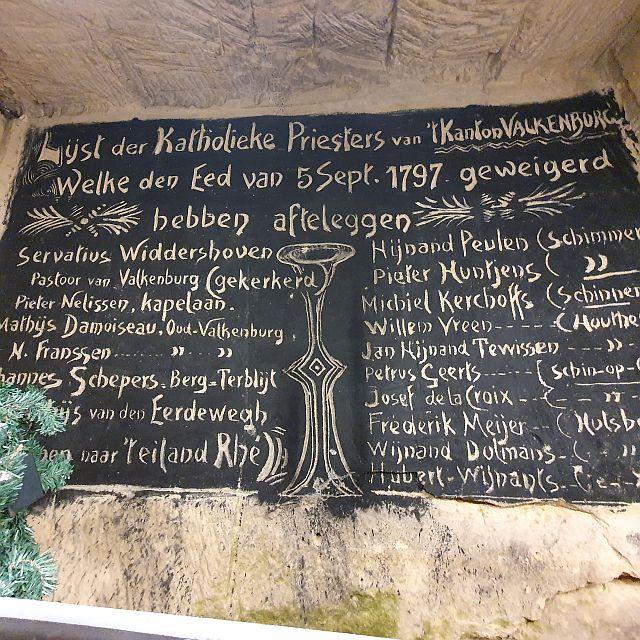 Lijst der Katholieke Priesters van 't Kanton VALKENBURG
Welke den Eed van 5 Sept. 1797 geweigerd
hebben afteleggen
Servatius Widdershoven
Pastoor van Valkenburg (gekerkerd)
Pieter Nelissen, kapelaan.
Mathijs Damoiseau. Oud-Valkenburg.
N. Franssen ........ " "
hannes Schepers. Berg-Terblijt
ijs van den Eerdewegh
en naar 't eiland Rhé)
Nijnand Peulen (Schimmer
Pieter Huntjens ( "
Michiel Kerchoffs (Schinnen
Willem Vreen ---- (Houthe
Jan Nijnand Tewissen "
Petrus Geerts ---- (Schin-op-
Josef de la Croix --- ( "
Frederik Meijer -- ( Hulsbe
Wijnand Dolmans - ( "
Hubert - Wijnants